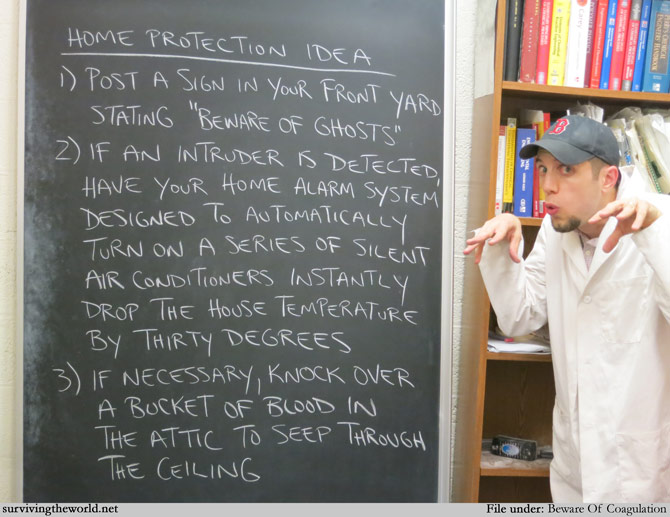 HOME PROTECTION IDEA
1) POST A SIGN IN YOUR FRONT YARD
STATING "BEWARE OF GHOSTS"
2) IF AN INTRUDER IS DETECTED,
HAVE YOUR HOME ALARM SYSTEM
DESIGNED TO AUTOMATICALLY
TURN ON A SERIES OF SILENT
AIR CONDITIONERS INSTANTLY
DROP THE HOUSE TEMPERATURE
BY THIRTY DEGREES
3) IF NECESSARY, KNOCK OVER
A BUCKET OF BLOOD IN
THE ATTIC TO SEEP THROUGH
THE CEILING
B
survivingtheworld.net
File under: Beware Of Coagulation